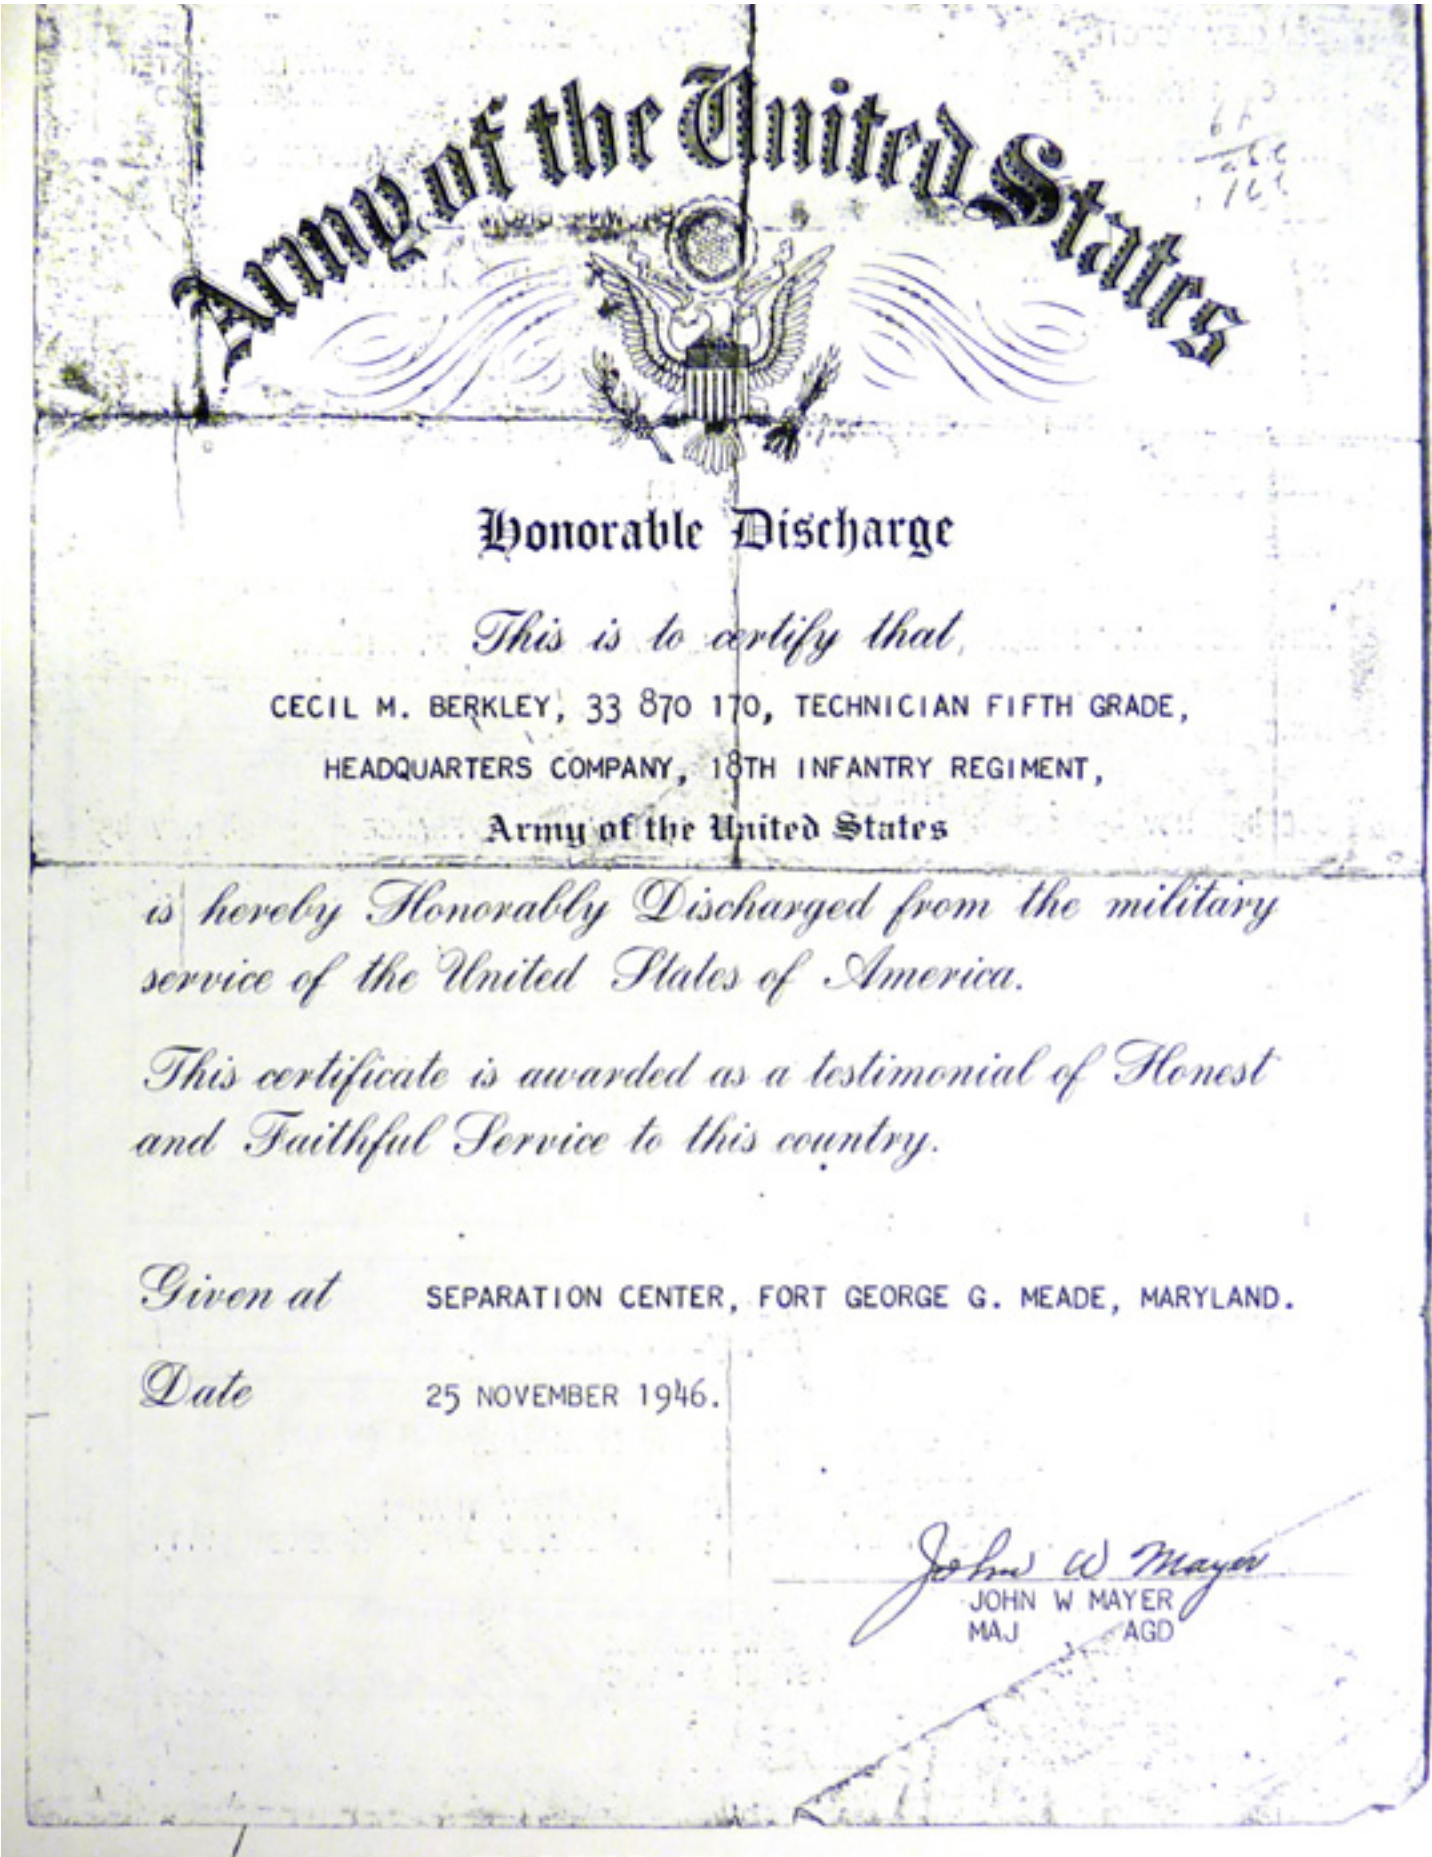 Army of the United States
Honorable Discharge
This is to certify that
CECIL M. BERKLEY, 33 870 170, TECHNICIAN FIFTH GRADE,
HEADQUARTERS COMPANY, 18TH INFANTRY REGIMENT,
Army of the United States
is hereby Honorably Discharged from the military
service of the United States of America.
This certificate is awarded as a testimonial of Honest
and Faithful Service to this country.
Given at SEPARATION CENTER, FORT GEORGE G. MEADE, MARYLAND.
Date 25 NOVEMBER 1946.
John W Mayer
JOHN W MAYER
MAJ AGD